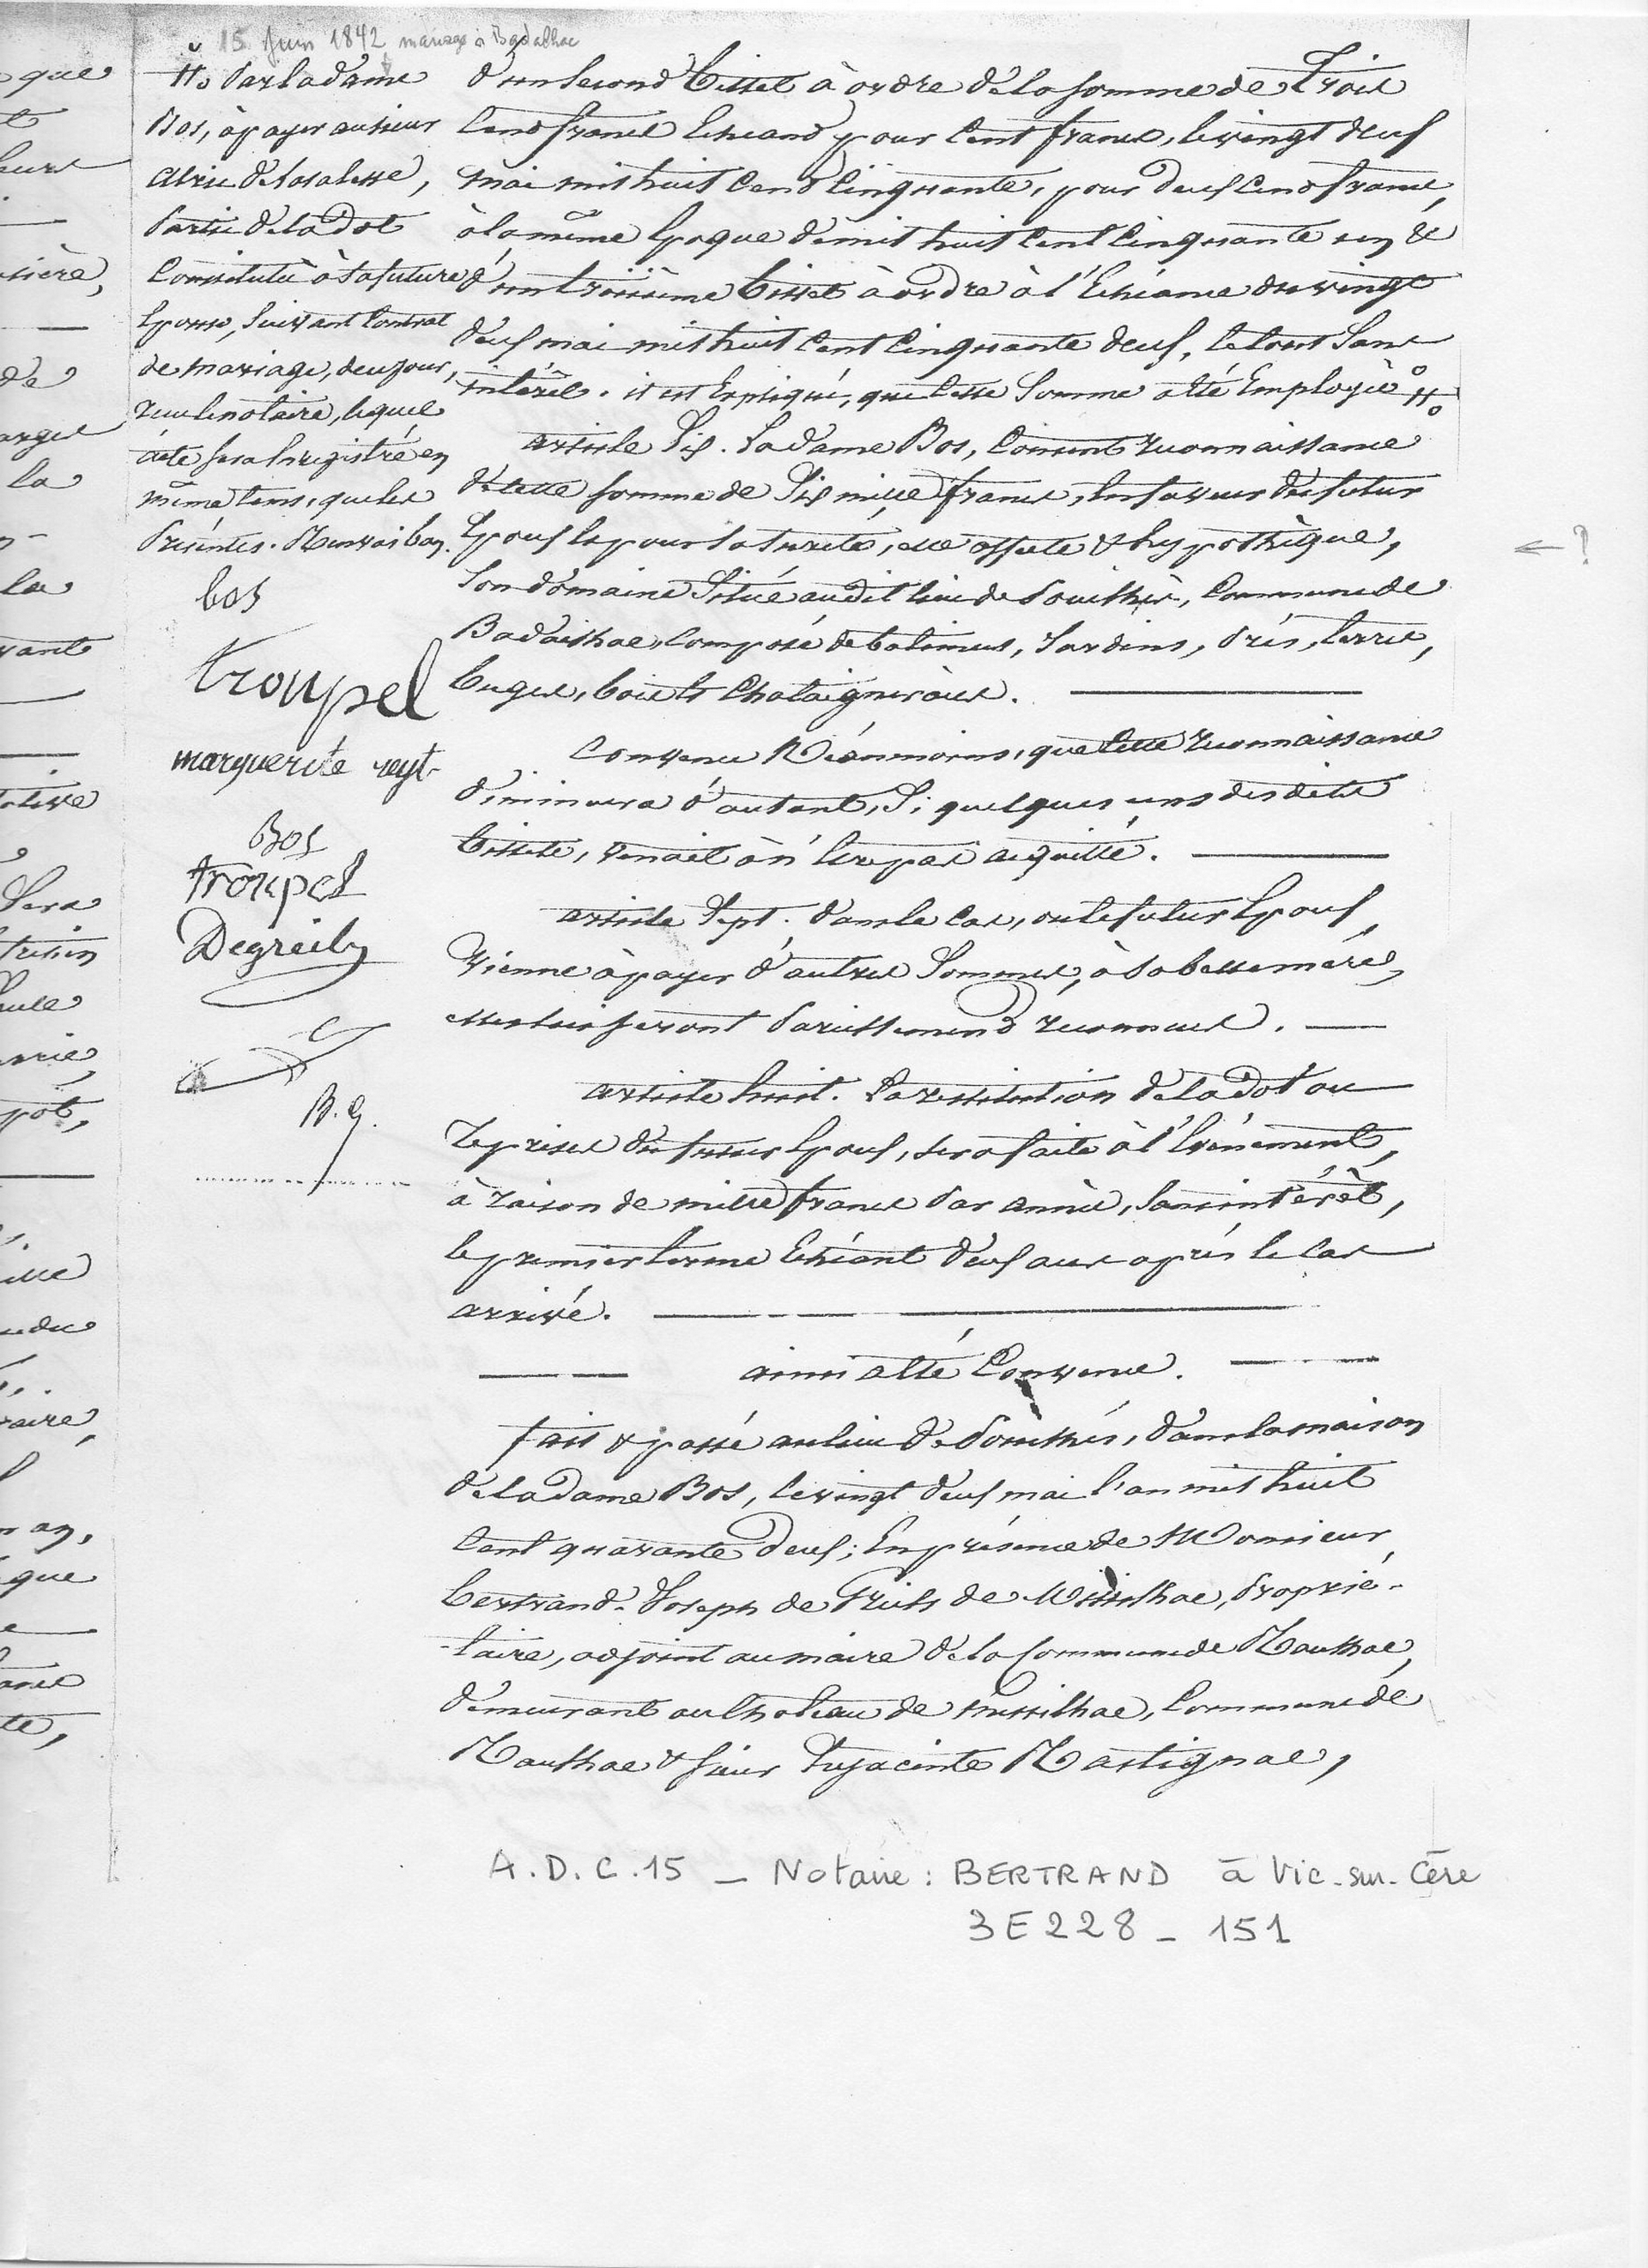 15 Juin 1842 mariage à Badalhac
que
H° Par la dame
Bos, à payer au sieur
Alric de Lasalesse,
Partie de la dot
Constituée à sa future
Epouse, suivant Contrat
de mariage, de ce jour,
reçu le notaire, lequel
acte sera Enregistré en
même tems, que les
Présentes. Renvoi bon.
bos
troupel
marguerite reyt
Bos
troupel
Degreily
B. G.
d'un second billet à ordre de la somme de Trois
Cend francs Echeand pour Cent francs, le vingt deux
mai mil huit Cend Cinquante, pour deux Cend francs,
à la même Epoque de mil huit Cent Cinquante un &
d'un troisième billet à ordre à l'Echéance du vingt
deux mai mil huit Cent Cinquante deux, le tout Sans
intérêt. il est Expliqué, que Cette Somme a été Employée H°
article Six. La dame Bos, Consent reconnaissance
de Cette somme de Six mille francs, En faveur du futur
Epoux & pour sa sureté, elle affecte & hypothèque,
Son domaine Situé audit lieu de Souilhès, Commune de
Badailhac, Composé de batimens, Jardins, Prés, terres,
buges, bois & Chataigneraies.
Convenu Néanmoins, que Cette reconnaissance
diminuera d'autant, Si quelques uns des dits
billets, venait à n'être pas acquitté.
article Sept. dans le Cas, où le futur Epoux,
Vienne à payer d'autres Sommes, à sa belle mère,
elles lui seront Pareillemend reconnues.
article huit. La restitution de la dot ou
reprises du futur Epoux, sera faite à l'Evénement,
à raison de mille francs Par année, Sans intérêt,
le premier terme Echéant deux ans après le Cas
arrivé.
ainsi a été Convenu.
fait & passé au lieu de Souilhès, dans la maison
de la dame Bos, le vingt deux mai l'an mil huit
Cent quarante deux; En présence de Monsieur
bertrand-Joseph de Pruels de Messilhac, Proprié-
taire, adjoint au maire de la Commune de Raulhac,
demeurant au Chateau de messilhac, Commune de
Raulhac & sieur Hyacinte Rastignac,
← ?
A.D.C.15 _ Notaire : BERTRAND à Vic-sur-Cère
3E228 _ 151